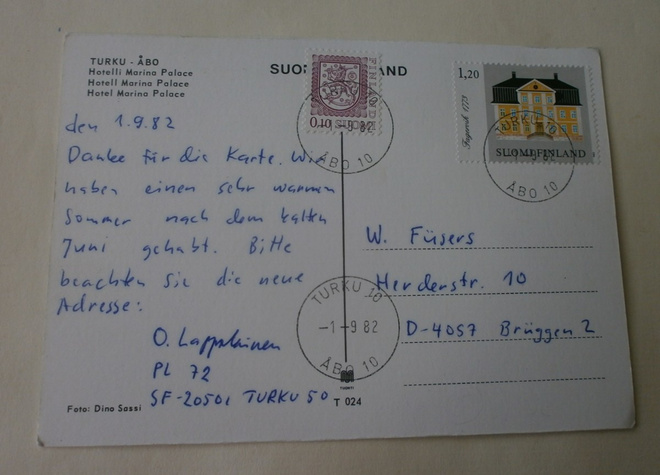 TURKU - ÅBO
Hotelli Marina Palace
Hotell Marina Palace
Hotel Marina Palace
den 1.9.82
Danke für die Karte. Wir
haben einen sehr warmen
Sommer nach dem kalten
Juni gehabt. Bitte
beachten Sie die neue
Adresse:
O. Lappalainen
PL 72
SF-20501 TURKU 50
Foto: Dino Sassi
FINLAND
0,10 SUOMI
TURKU 10
-1-9 82
ÅBO 10
1,20
Fagervik 1773
SUOMI FINLAND
TURKU 10
ÅBO 10
W. Füsers
Herderstr. 10
D-4057 Brüggen 2
TURKU 10
-1-9 82
ÅBO 10
T 024